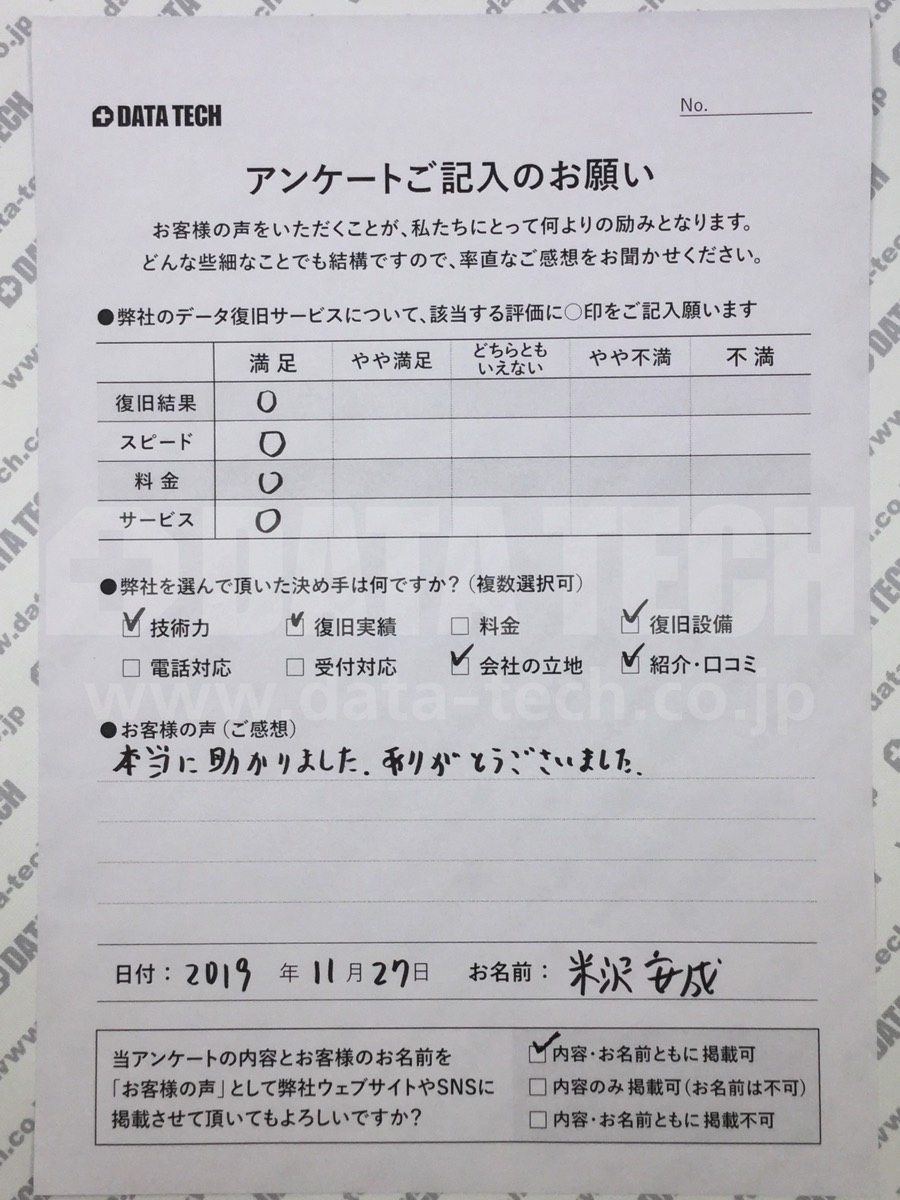 DATA TECH
No.
アンケートご記入のお願い
お客様の声をいただくことが、私たちにとって何よりの励みとなります。
どんな些細なことでも結構ですので、率直なご感想をお聞かせください。
●弊社のデータ復旧サービスについて、該当する評価に○印をご記入願います
満足 やや満足 どちらとも いえない やや不満 不満
復旧結果 ○
スピード ○
料金 ○
サービス ○
DATA TECH
●弊社を選んで頂いた決め手は何ですか?(複数選択可)
☑技術力 ☑復旧実績 □料金 ☑復旧設備
□電話対応 □受付対応 ☑会社の立地 ☑紹介・口コミ
www.data-tech.co.jp
●お客様の声(ご感想)
本当に助かりました。ありがとうございました。
日付: 2019 年 11 月 27 日 お名前: 米沢 安成
当アンケートの内容とお客様のお名前を
「お客様の声」として弊社ウェブサイトやSNSに
掲載させて頂いてもよろしいですか?
☑内容・お名前ともに掲載可
□内容のみ掲載可(お名前は不可)
□内容・お名前ともに掲載不可